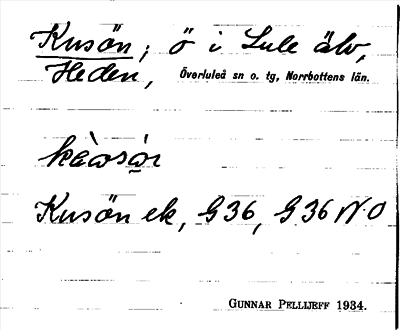 Kusön; ö i Lule älv,
Heden, Överluleå sn o. tg, Norrbottens län.
Kusön ek, G36, G36 NO
GUNNAR PELLIJEFF 1934.